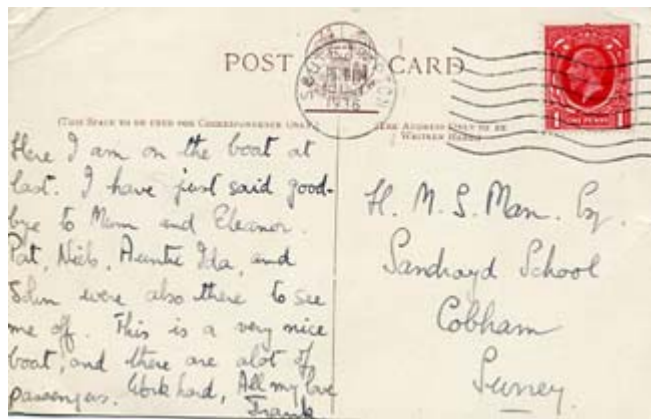 POST CARD
SOUTHAMPTON
1936
(THIS SPACE TO BE USED FOR CORRESPONDENCE ONLY.)
(THE ADDRESS ONLY TO BE
WRITTEN HERE.)
Here I am on the boat at
last. I have just said good-
bye to Mum and Eleanor.
Pat, Niels, Auntie Ida, and
John were also there to see
me off. This is a very nice
boat, and there are alot of
passengers. Work hard, All my love
Frank
H. M. S. Man. Esq.
Sandroyd School
Cobham
Surrey.
1 ONE PENNY 1